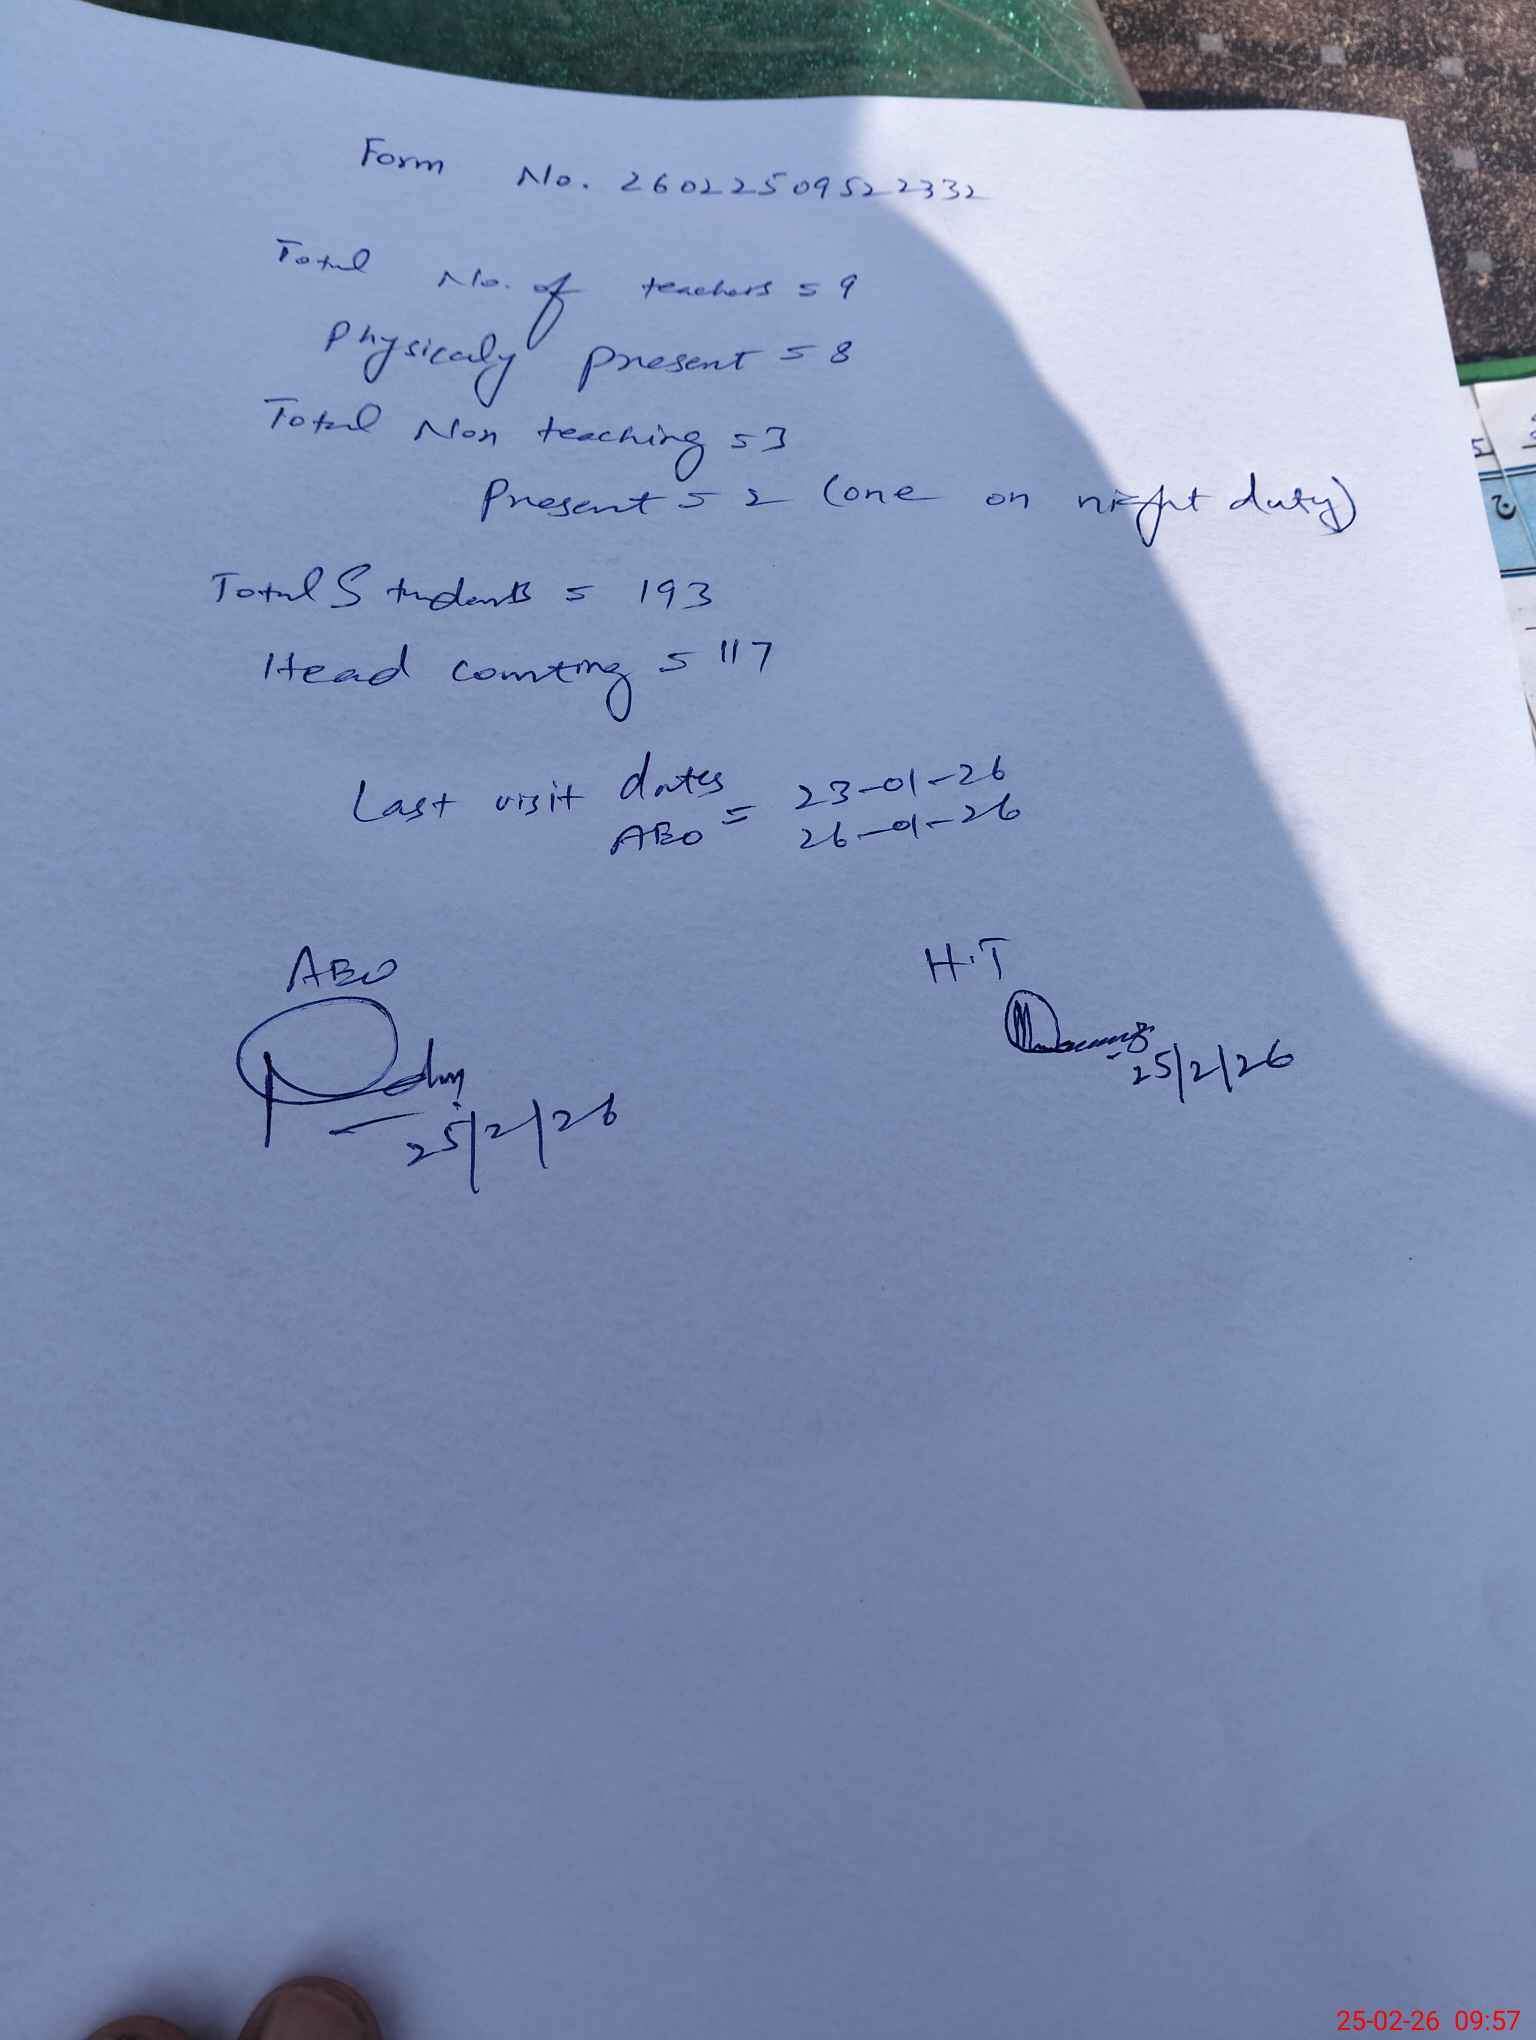 Form No. 26022509522332
Total No. of teachers = 9
Physicaly present = 8
Total Non teaching = 3
Present = 2 (one on night duty)
Total Students = 193
Head counting = 117
Last visit dates = 23-01-26
ABO 26-01-26
ABO
25/2/26
H.T
25/2/26
ج
25-02-26 09:57